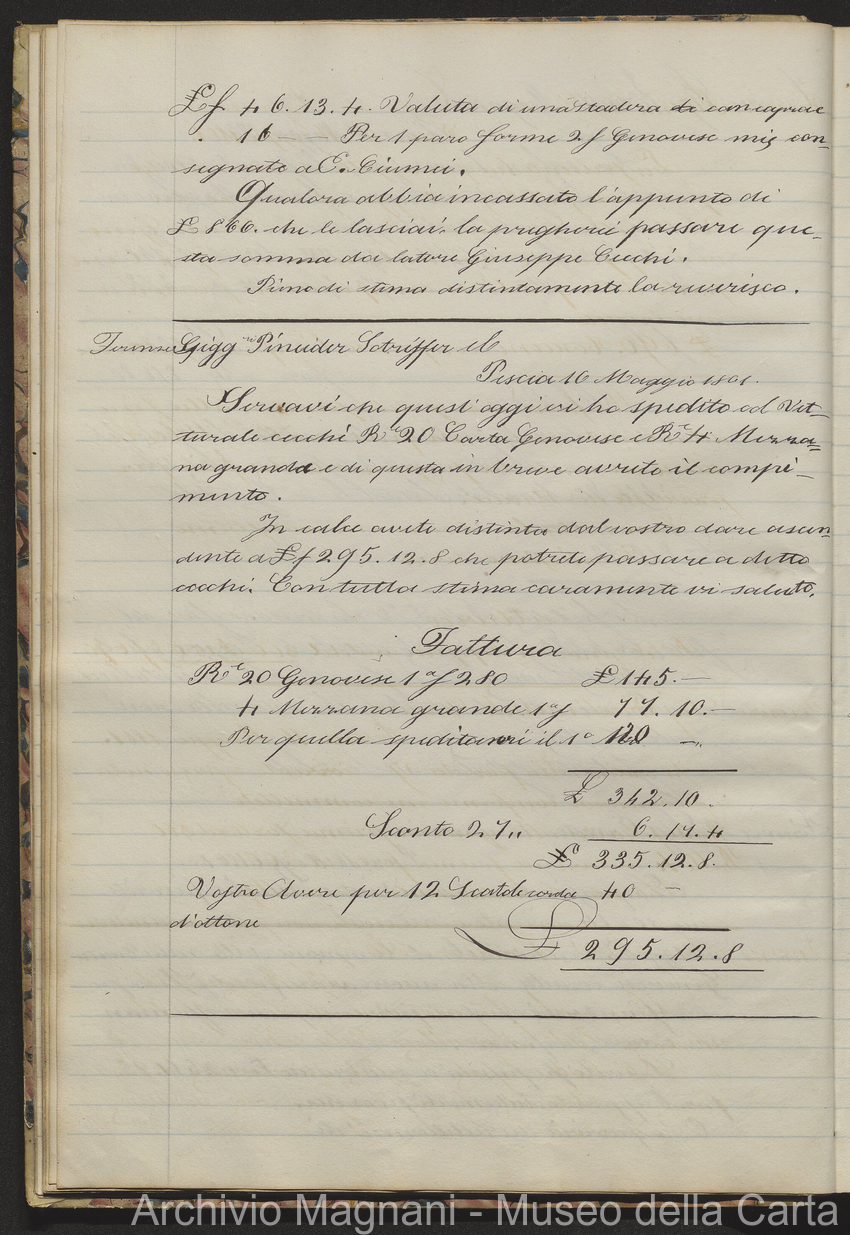 £f 46.13.4. Valuta di una stadera di con caprae
. 16 — — Per 1 paro forme 2f Genovese mie con-
segnate a C. Ciumei.
Qualora abbia incassato l'appunto di
£ 866. che le lasciai. la pregherei passare que-
sta somma da latore Giuseppe Cecchi.
Pieno di stima distintamente la riverisco.
Firenze Sigg ri Pineider Sctriffer e C
Pescia 16 Maggio 1861.
Servavi che quest'oggi vi ho spedito col Vet=
turale cecchi Re 20 Carta Genovese e Re 4 Mezza=
na grande e di questa in breve avrete il compi-
mento.
In calce avete distinta dal vostro dare ascen
dente a £f 295.12.8 che potrete passare a detto
cecchi. Con tutta stima caramente vi saluto.
Fattura
Re 20 Genovese 1a f 280 £ 145.—
4 Mezzana grande 1a f 77.10.—
Per quella speditavi il 1o 120 —.
£ 342.10.
Sconto 2 %. 6.17.4
£ 335.12.8.
Vostro Avere per 12 Scatole corde 40 —
d'ottone
£ 295.12.8
Archivio Magnani - Museo della Carta